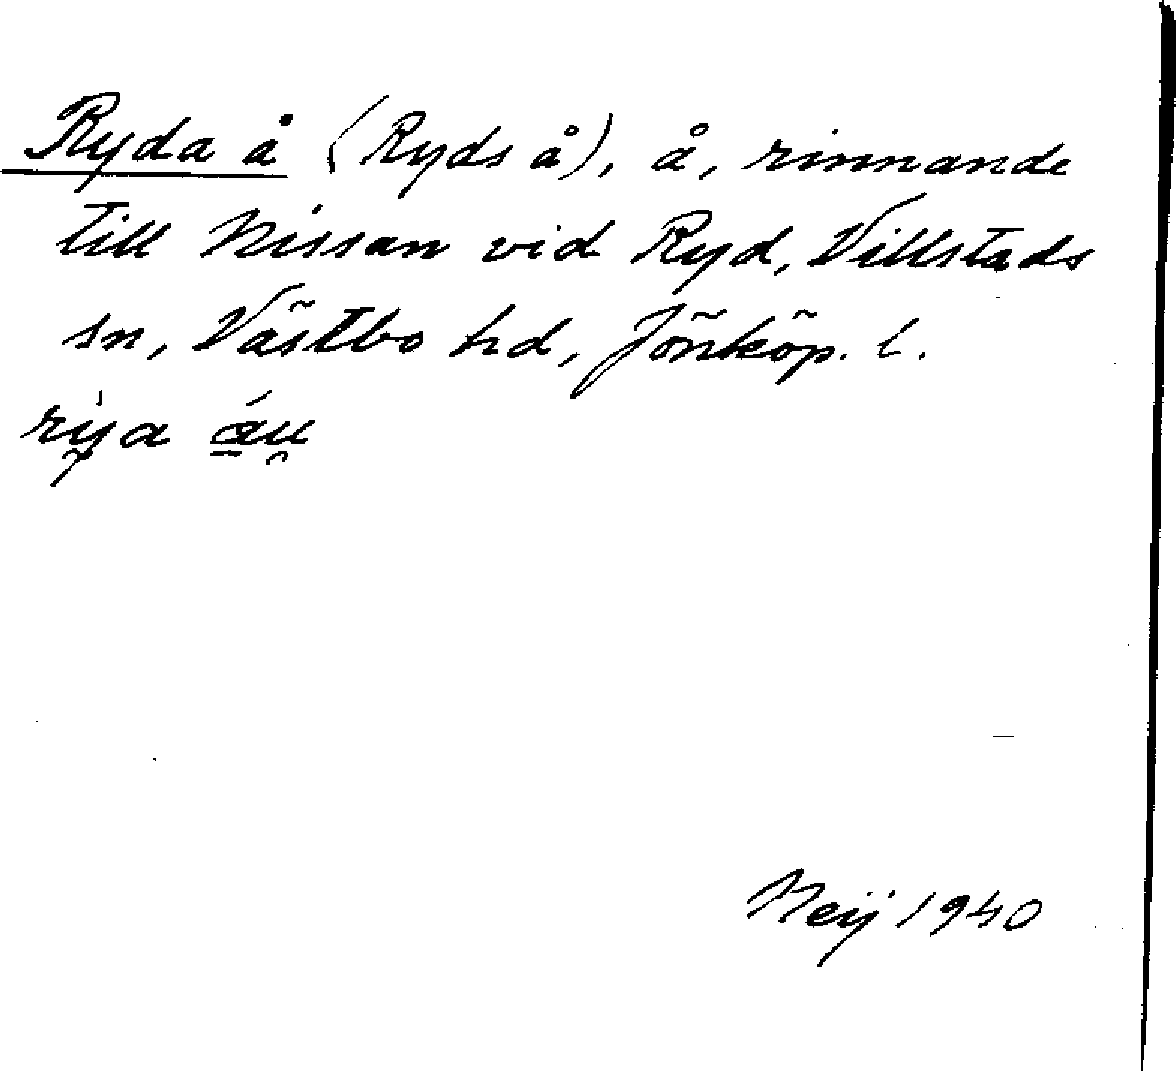 Ryda å (Ryds å), å, rinnande
till Nissan vid Ryd, Villstads
sn, Västbo hd, Jönköp. l.
Heij 1940